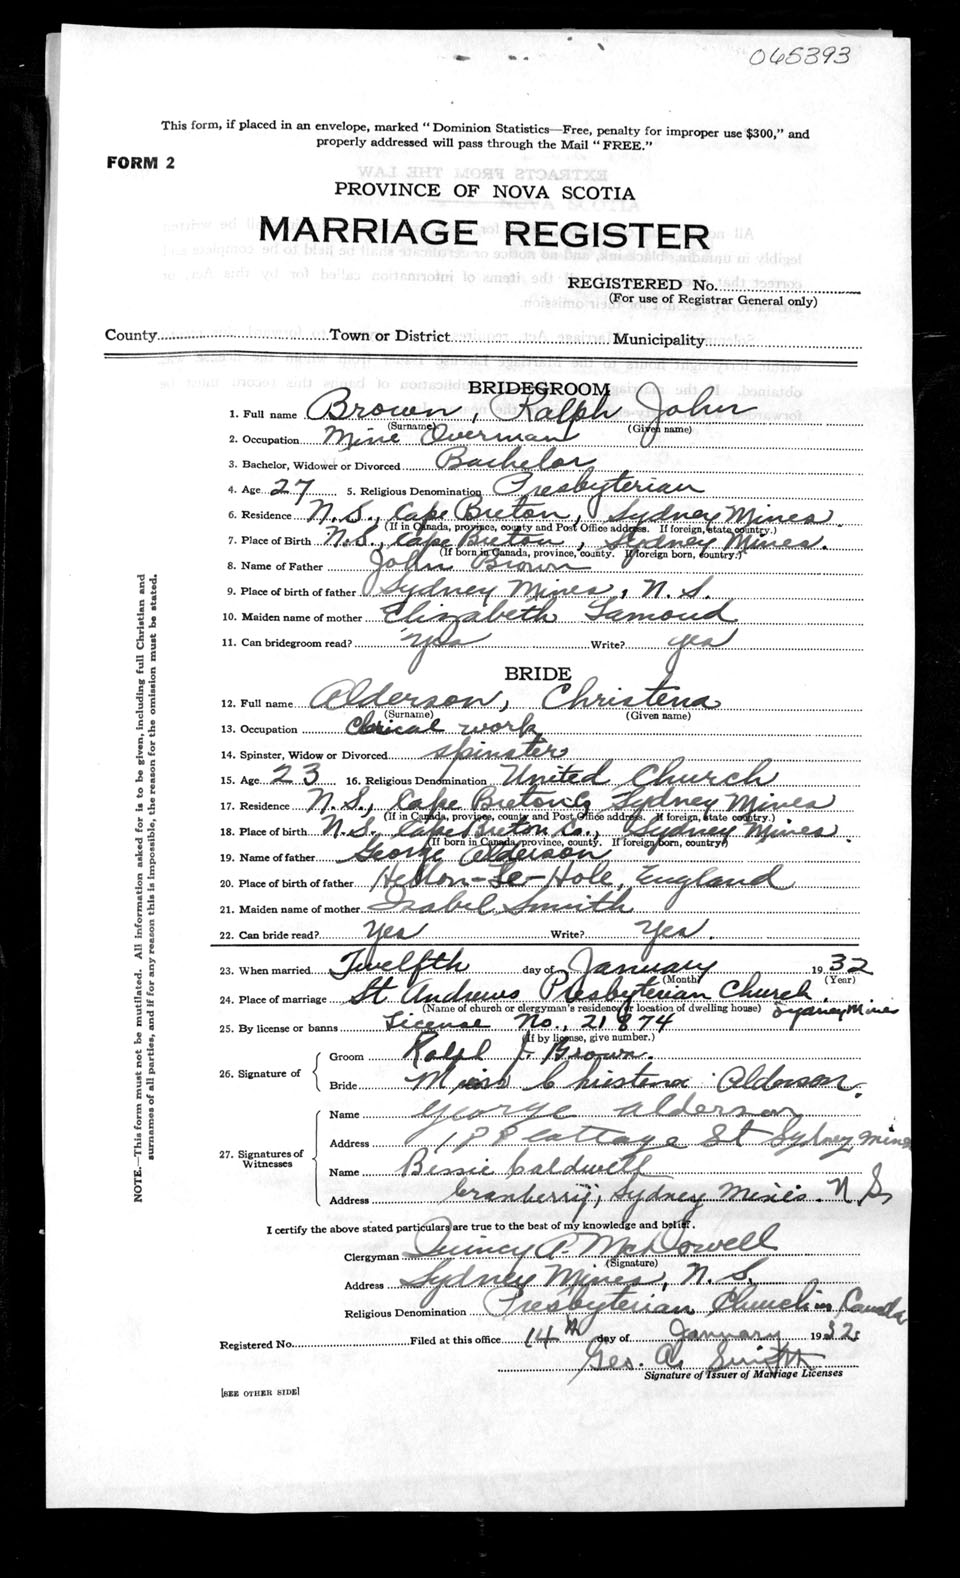 065393
This form, if placed in an envelope, marked "Dominion Statistics—Free, penalty for improper use $300," and
properly addressed will pass through the Mail "FREE."
FORM 2
PROVINCE OF NOVA SCOTIA
MARRIAGE REGISTER
REGISTERED No.
(For use of Registrar General only)
County Town or District Municipality
BRIDEGROOM
1. Full name Brown, Ralph John
(Surname) (Given name)
2. Occupation Mine Overman
3. Bachelor, Widower or Divorced Bachelor
4. Age 27 5. Religious Denomination Presbyterian
6. Residence N.S., Cape Breton, Sydney Mines
(If in Canada, province, county and Post Office address. If foreign, state country.)
7. Place of Birth N.S., Cape Breton, Sydney Mines.
(If born in Canada, province, county. If foreign born, country.)
8. Name of Father John Brown
9. Place of birth of father Sydney Mines, N.S.
10. Maiden name of mother Elizabeth Lamond
11. Can bridegroom read? yes Write? yes
BRIDE
12. Full name Alderson, Christena
(Surname) (Given name)
13. Occupation Clerical work
14. Spinster, Widow or Divorced spinster
15. Age 23 16. Religious Denomination United Church
17. Residence N.S., Cape Breton Co, Sydney Mines
(If in Canada, province, county and Post Office address. If foreign, state country.)
18. Place of birth N.S. Cape Breton Co., Sydney Mines.
(If born in Canada, province, county. If foreign born, country)
19. Name of father George Alderson
20. Place of birth of father Hetton-Le-Hole, England
21. Maiden name of mother Isabel Smith
22. Can bride read? Yes Write? Yes.
23. When married Twelfth day of January 1932
(Month) (Year)
24. Place of marriage St Andrews Presbyterian Church,
(Name of church or clergyman's residence or location of dwelling house) Sydney Mines
25. By license or banns License No., 21874
(If by license, give number.)
26. Signature of
Groom Ralph J. Brown.
Bride Miss Christena Alderson.
27. Signatures of Witnesses
Name George Alderson
Address 188 Cottage St Sydney Mines
Name Bessie Caldwell
Address Cranberry, Sydney Mines. N.S.
I certify the above stated particulars are true to the best of my knowledge and belief.
Clergyman Quincy A. McDowell
(Signature)
Address Sydney Mines, N.S.
Religious Denomination Presbyterian Church in Canada
Registered No. Filed at this office 14th day of January 1932
Geo. A. Smith
Signature of Issuer of Marriage Licenses
[SEE OTHER SIDE]
NOTE.—This form must not be mutilated. All information asked for is to be given, including full Christian and
surnames of all parties, and if for any reason this is impossible, the reason for the omission must be stated.